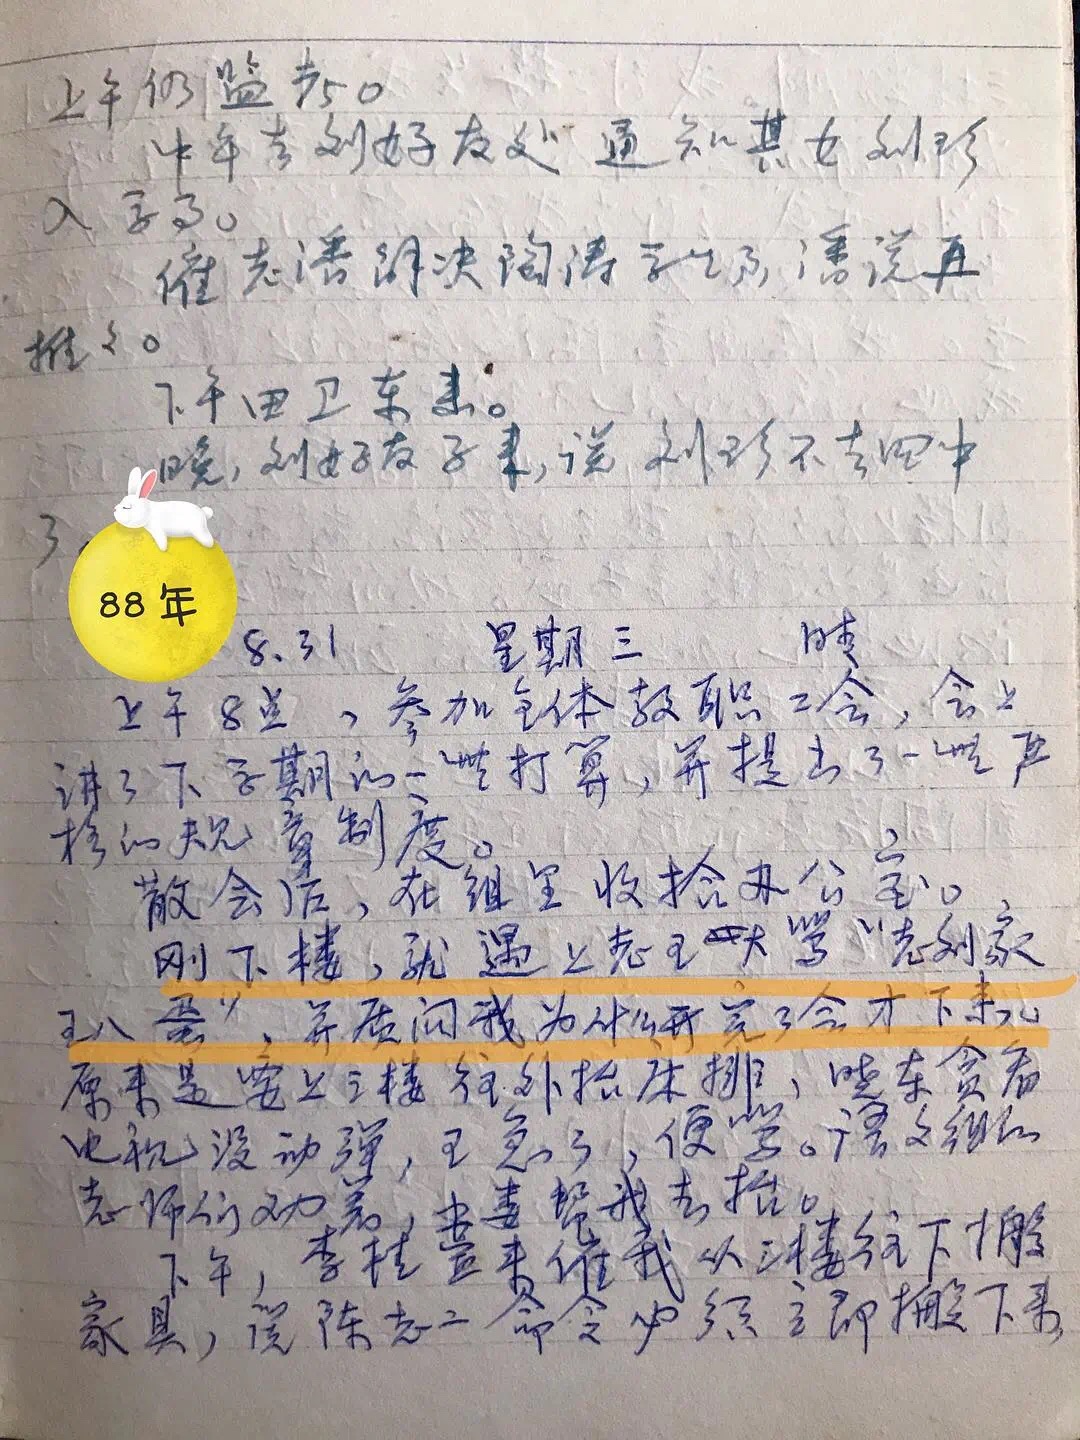 上午仍监考。
中午去刘好友处通知其女刘珍
入学事。
催老潘解决陶涛学生事,潘说再
推之。
下午田卫东来。
晚,刘好友子来,说刘珍不去四中
了。
88年
8.31 星期三 晴
上午8点,参加全体教职工会,会上
讲了下学期的一些打算,并提出了一些严
格的规章制度。
散会后,在组里收拾办公室。
刚下楼,就遇上老王大骂“老刘家
王八蛋”,并质问我为什么开完了会才下来。
原来是要上三楼往外抬床排,晓东贪看
电视没动弹,王急了,便骂。语文组的
老师们劝着,娄帮我去抬。
下午,李桂 来催我从三楼往下搬
家具,说陈老二命令必须立即搬下来,